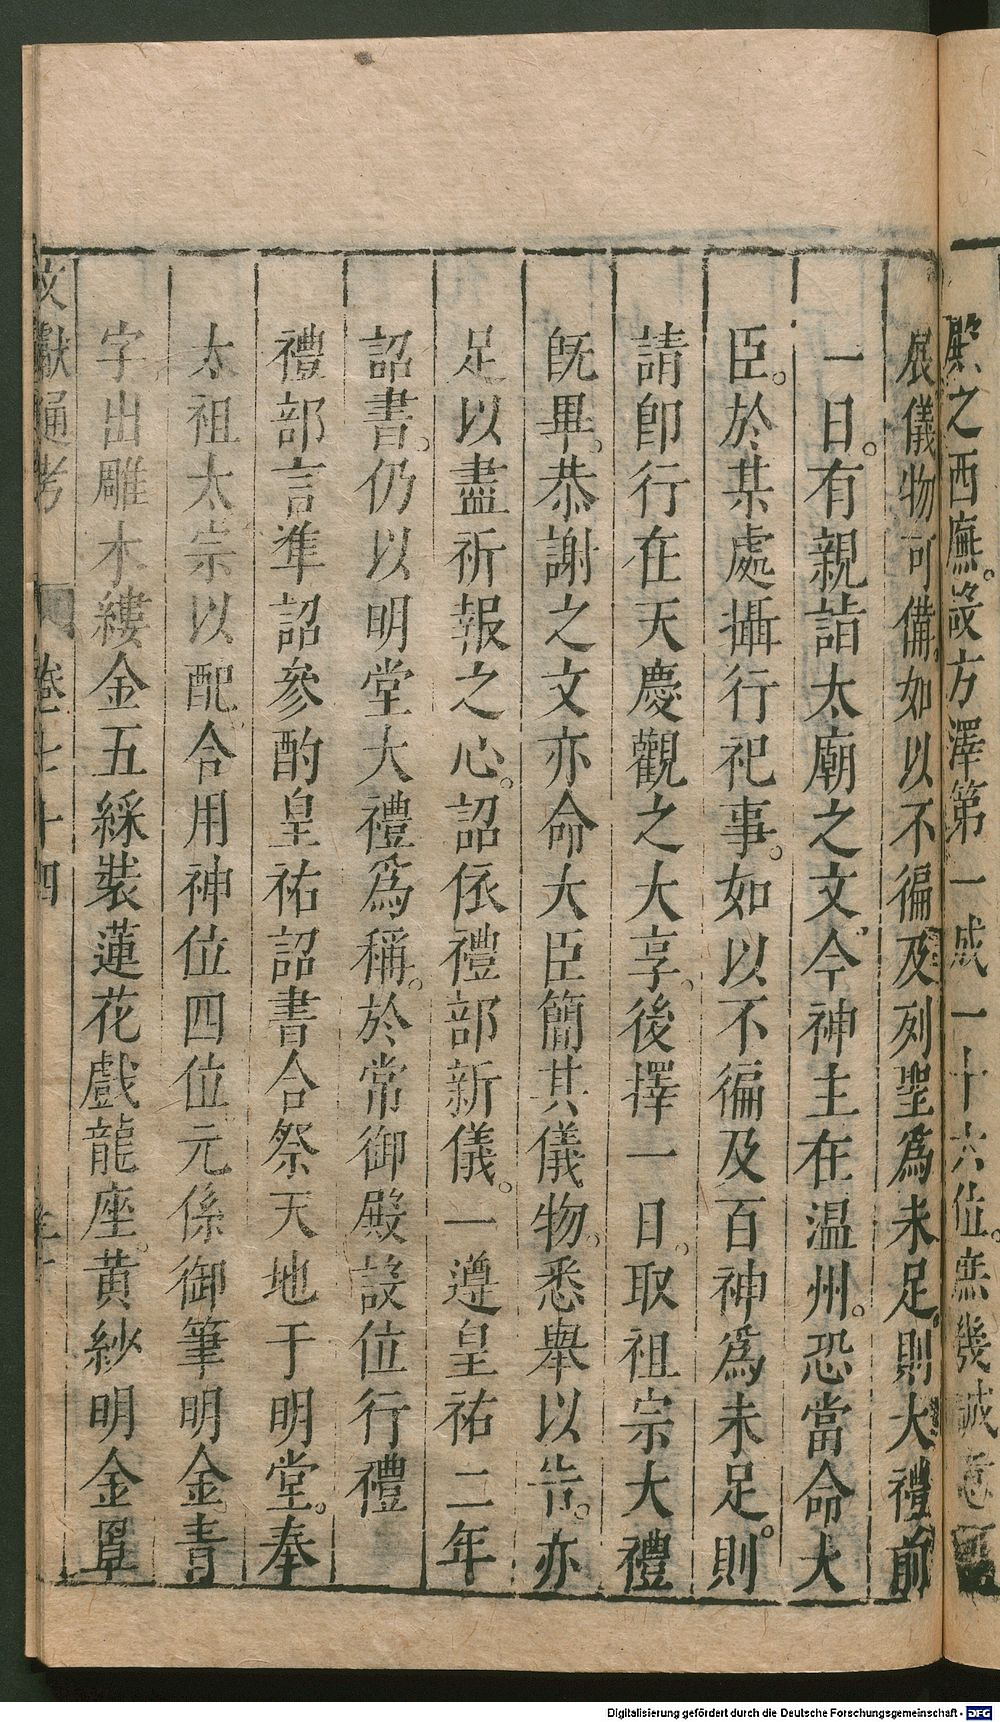 殿之西廡。設方澤第一成一十六位。庶幾誠意
展儀物可備。如以不徧及列聖爲未足。則大禮前
一日。有親詣太廟之文。今神主在温州。恐當命大
臣。於某處攝行祀事。如以不徧及百神爲未足。則
請卽行在天慶觀之大享。後擇一日。取祖宗大禮
旣畢。恭謝之文亦命大臣簡其儀物。悉舉以告。亦
足以盡祈報之心。詔依禮部新儀。一遵皇祐二年
詔書。仍以明堂大禮爲稱。於常御殿設位行禮
禮部言準詔參酌皇祐詔書合祭天地于明堂。奉
太祖太宗以配。合用神位四位元係御筆明金青
字出雕木縷金五綵裝蓮花戲龍座。黄紗明金罩
文獻通考 卷七十四
Digitalisierung gefördert durch die Deutsche Forschungsgemeinschaft - DFG